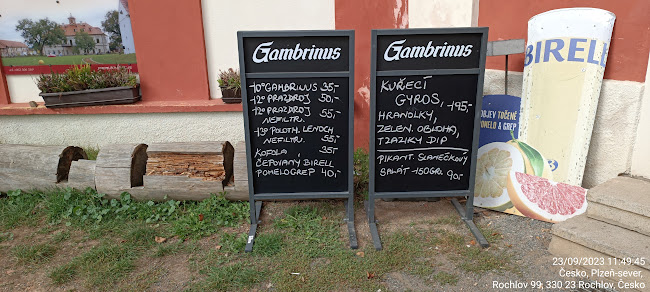 Gambrinus
10° GAMBRINUS 35,-
12° PRAZDROJ 50,-
12° PRAZDROJ
NEFILTR. 55,-
13° POLOTM. LENOCH
NEFILTR. 55,-
KOFOLA 35,-
ČEPOVANÝ BIRELL
POMELOGREP 40,-
Gambrinus
KUŘECÍ
GYROS, 195,-
HRANOLKY,
ZELEN. OBLOHA,
TZAZIKY DIP
PIKANT. SLANEČKOVÝ
SALÁT -150GR. 90,-
BIRELL
OBJEV TOČENÉ
POMELO & GREP
23/09/2023 11:49:45
Česko, Plzeň-sever,
Rochlov 99, 330 23 Rochlov, Česko